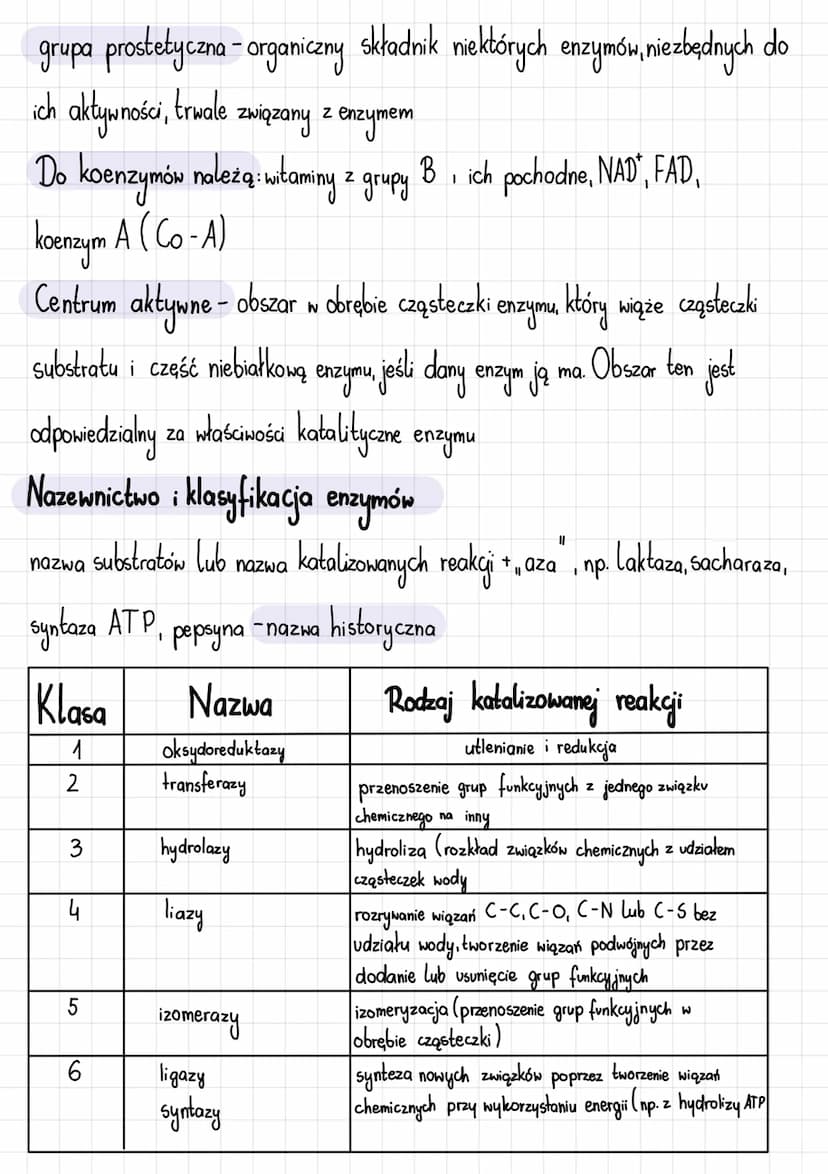 grupa prostetyczna - organiczny składnik niektórych enzymów, niezbędnych do
ich aktywności, trwale związany z enzymem
Do koenzymów należą: witaminy z grupy B i ich pochodne, NAD⁺, FAD,
koenzym A (Co-A)
Centrum aktywne - obszar w obrębie cząsteczki enzymu, który wiąże cząsteczki
substratu i część niebiałkową enzymu, jeśli dany enzym ją ma. Obszar ten jest
odpowiedzialny za właściwości katalityczne enzymu
Nazewnictwo i klasyfikacja enzymów
nazwa substratów lub nazwa katalizowanych reakcji + „aza", np. laktaza, sacharaza,
syntaza ATP, pepsyna - nazwa historyczna
Klasa Nazwa Rodzaj katalizowanej reakcji
1 oksydoreduktazy utlenianie i redukcja
2 transferazy przenoszenie grup funkcyjnych z jednego związku
chemicznego na inny
3 hydrolazy hydroliza (rozkład związków chemicznych z udziałem
cząsteczek wody
4 liazy rozrywanie wiązań C-C, C-O, C-N lub C-S bez
udziału wody, tworzenie wiązań podwójnych przez
dodanie lub usunięcie grup funkcyjnych
5 izomerazy izomeryzacja (przenoszenie grup funkcyjnych w
obrębie cząsteczki)
6 ligazy synteza nowych związków poprzez tworzenie wiązań
syntazy chemicznych przy wykorzystaniu energii (np. z hydrolizy ATP